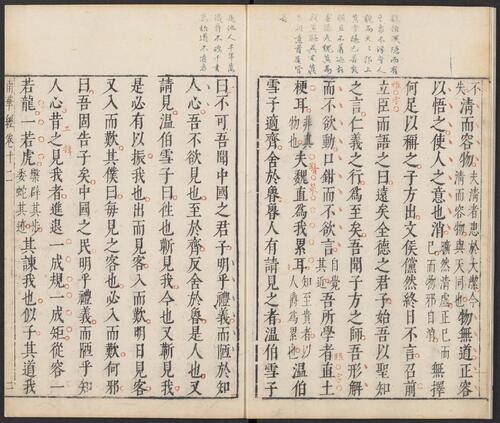 不清而容物物無道正容
失夫清者患於大潔今
清而容物與天同也
以悟之使人之意也消無擇
曠然清虛正己而
已而物邪自消
何足以稱之子方出文侯儻然終日不言召前
立臣而語之曰遠矣全德之君子始吾以聖知
之言仁義之行為至矣吾聞子方之師吾形解
而不欲動口鉗而不欲言吾所學者直土
自覺
其近
梗耳夫魏直為我累耳溫伯
非真
物也
知至貴者以
人爵為累也
雪子適齊舍於魯魯人有請見之者溫伯雪子
曰不可吾聞中國之君子明乎禮義而陋於知
人心吾不欲見也至於齊反舍於魯是人也又
請見溫伯雪子曰往也蘄見我今也又蘄見我
是必有以振我也出而見客入而歎明日見客
又入而歎其僕曰每見之客也必入而歎何邪
曰吾固告子矣中國之民明乎禮義而陋乎知
人心昔之見我者進退一成規一成矩從容一
若龍一若虎其諫我也似子其道我
槃辟其步
委蛇其迹
南華經卷十二
二